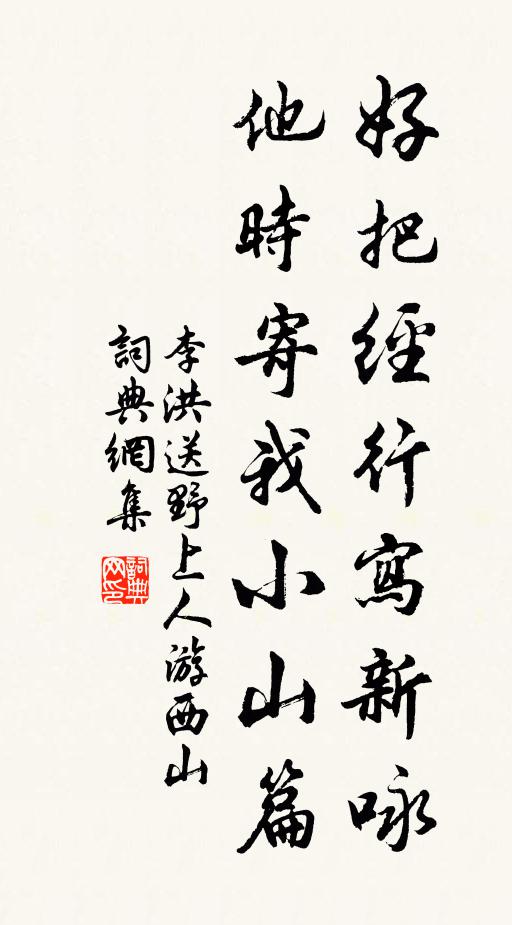 好把經行寫新咏
他時寄我小山篇
李洪送野上人游西山
詞典網集
詞典网印